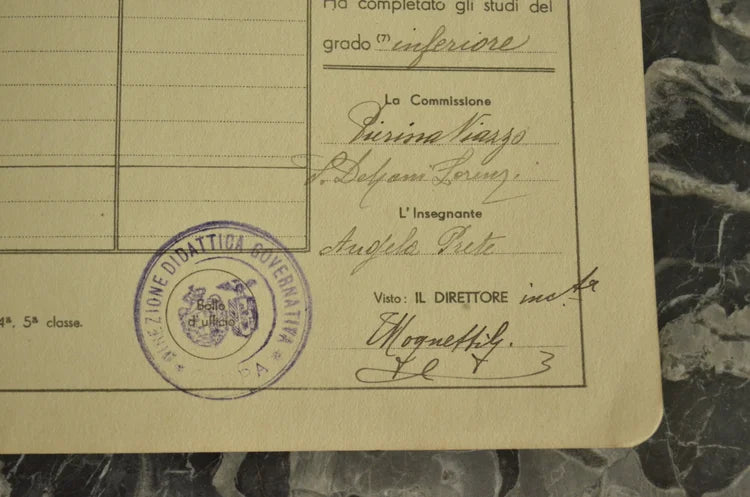 Ha completato gli studi del
grado (7) inferiore
La Commissione
Pierina Viazzo
L'Insegnante
Angela Prete
Visto: IL DIRETTORE inc.to
Moquetti G.
4ª, 5ª classe.
DIREZIONE DIDATTICA GOVERNATIVA
Bollo
d'ufficio